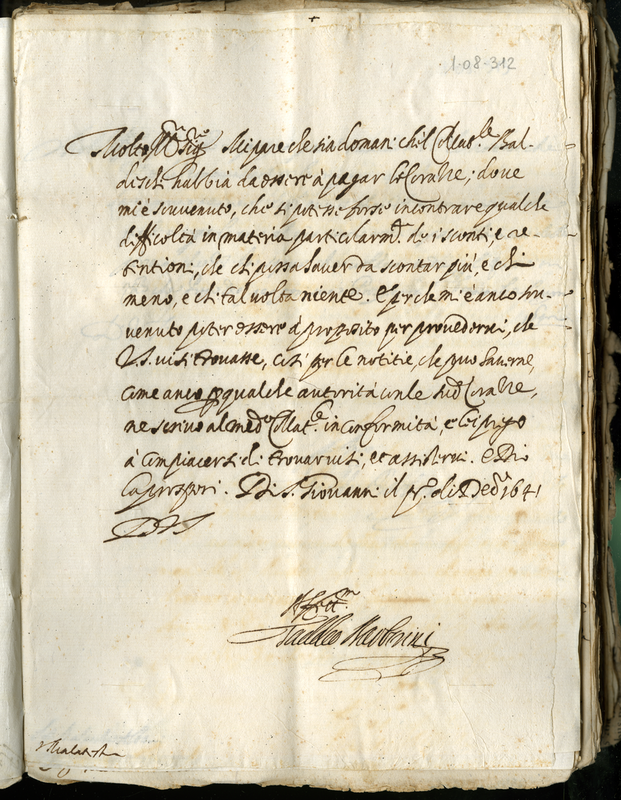 1-08-312
Molto Ill.re Sig.re Mi pare che sia domani ch'il Collat.le Bal-
deschi habbia da essere à pagar le Corazze; dove
mi è sovvenuto, che si potesse forse incontrare qualche
difficoltà in materia particolarm.te de i sconti, e re-
tentioni, che chi possa haver da scontar più, e chi
meno, e chi tal volta niente. E perche mi è anco sov-
venuto poter essere à proposito per provedervi, che
V.S. vi si trovasse, così per le notitie, che può haverne,
come anco p qualche autorità con le sud.e Corazze,
ne scrivo al med.o Collat.le in conformità, e lei prego
à compiacersi di trovarvisi, et assistervi. E Dio
la prosperi. Di S. Giovanni il p.o di Xbre 1641
DVS
Aff.mo
Taddeo Barberini